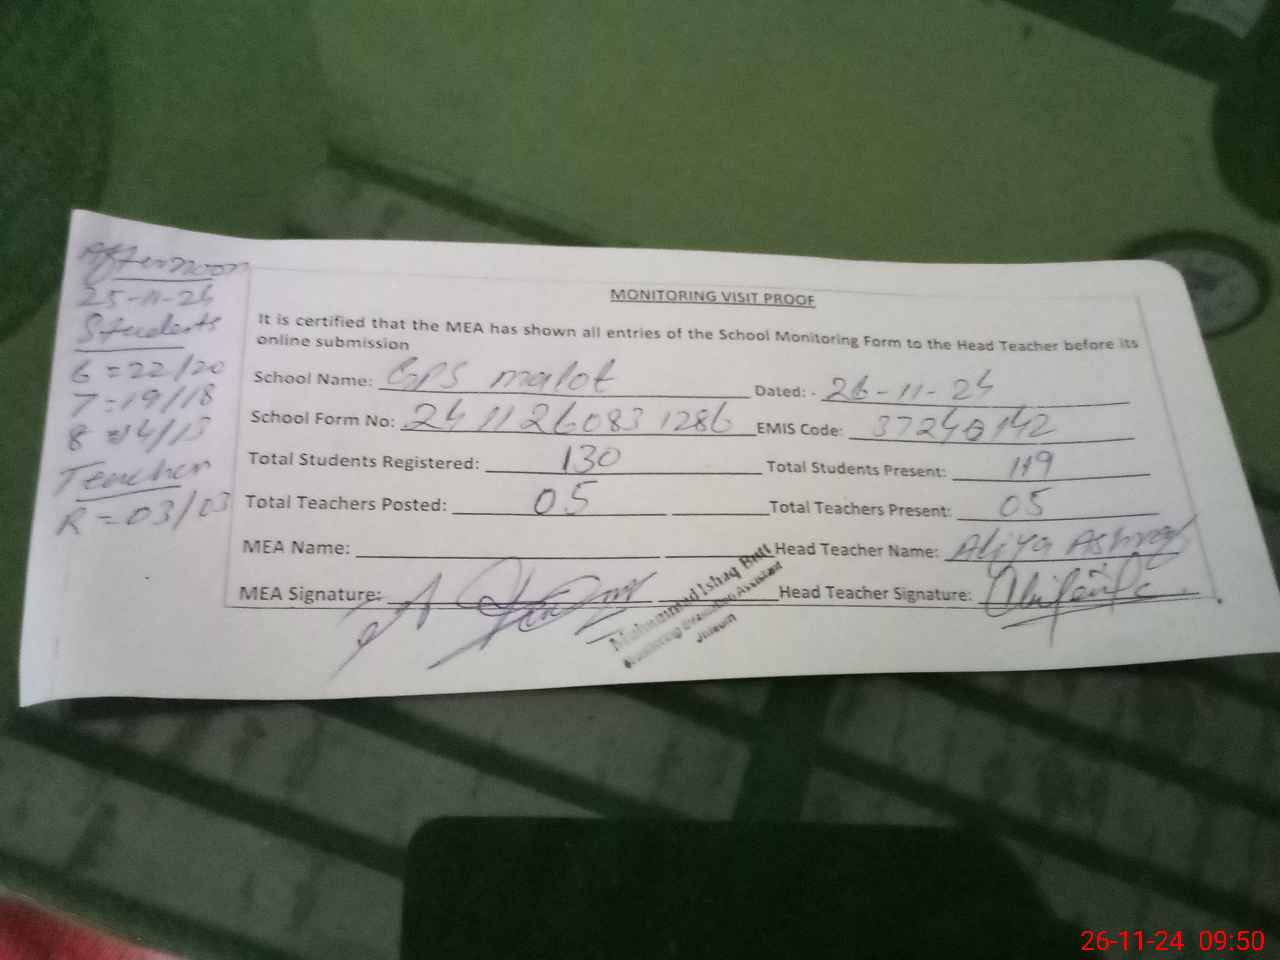 Afternoon
25-11-24
Students
6 = 22/20
7 = 19/18
8 = 14/13
Teacher
R = 03/03
MONITORING VISIT PROOF
It is certified that the MEA has shown all entries of the School Monitoring Form to the Head Teacher before its
online submission
School Name: GPS malot Dated: - 26-11-24
School Form No: 2411260831286 EMIS Code: 37240142
Total Students Registered: 130 Total Students Present: 119
Total Teachers Posted: 05 Total Teachers Present: 05
MEA Name: Head Teacher Name: Aliya Ashraf
MEA Signature: Head Teacher Signature:
Muhammad Ishaq Butt
Monitoring Evaluation Assistant
Jhelum
26-11-24 09:50